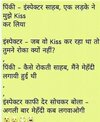 पिंकी – इंस्पेक्टर साहब, एक लड़के ने
मुझे Kiss
कर लिया
.
इंस्पेक्टर – जब वो Kiss कर रहा था तो
तुमने रोका क्यों नहीं?
.
पिंकी – कैसे रोकती साहब, मैंने मेहँदी
लगायी हुई थी
.
.
इंस्पेक्टर काफी देर सोचकर बोला –
अगली बार मेहँदी कब लगवाओगी